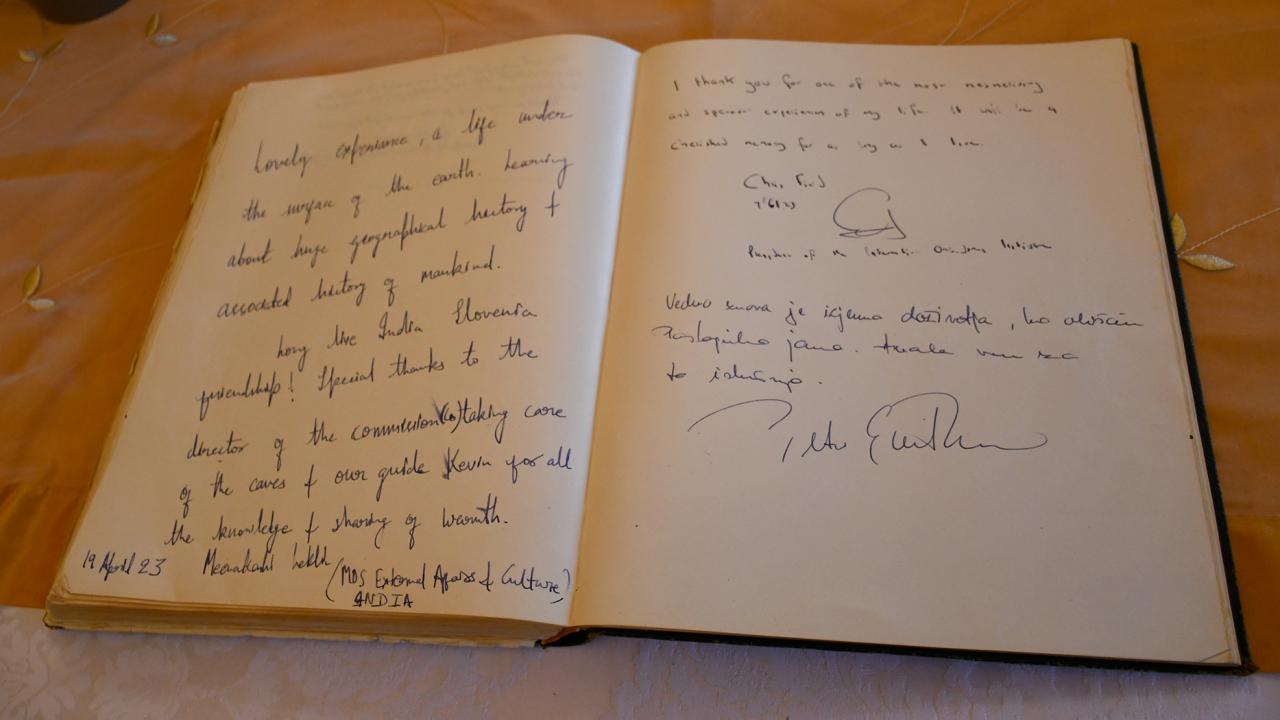 Lovely expreniance, a life under
the surface of the earth. Learning
about huge geographical history &
associated history of mankind.
Long live India Slovenia
friendship! Special thanks to the
director of the commission(s) taking care
of the caves & our guide Kevin for all
the knowledge & sharing of warmth.
19 April 23 Meenakashi Lekhi
(MOS External Affairs & Culture)
INDIA
I thank you for one of the most mesmerising
and special experiences of my life. It will be a
cherished memory for as long as I live.
President of the
Vedno znova je izjemno doživetje, ko obiščem
Postojnsko jamo. Hvala vam za
to izkušnjo.